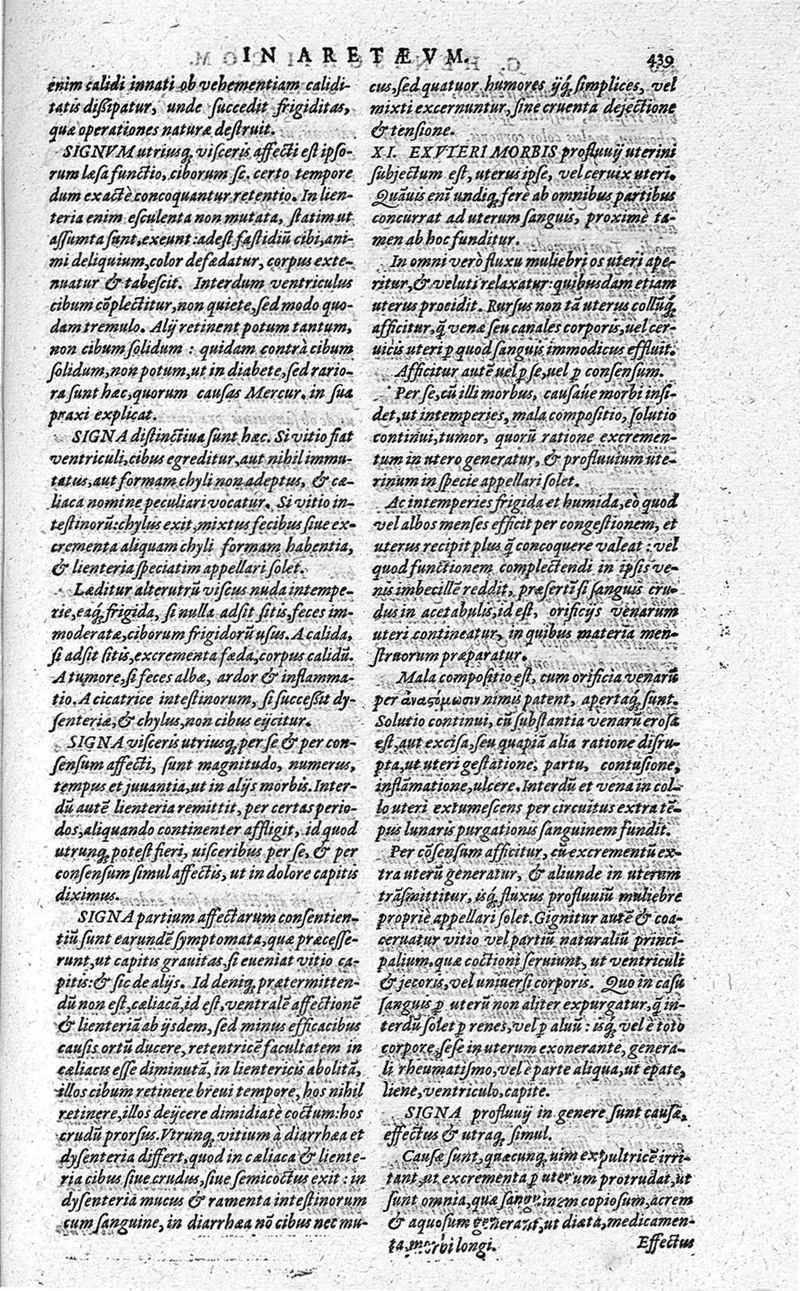 IN ARETÆVM.
439
enim calidi innati ob vehementiam calidi-
tatis dißipatur, unde succedit frigiditas,
quæ operationes naturæ destruit.
SIGNVM utriusq; visceris affecti est ipso-
rum læsa functio, ciborum sc. certo tempore
dum exactè concoquantur retentio. In lien-
teria enim esculenta non mutata, statim ut
assumta sunt, exeunt: adest fastidiũ cibi, ani-
mi deliquium, color defædatur, corpus exte-
nuatur & tabescit. Interdum ventriculus
cibum cõplectitur, non quiete, sed modo quo-
dam tremulo. Alij retinent potum tantum,
non cibum solidum: quidam contrà cibum
solidum, non potum, ut in diabete, sed rario-
ra sunt hæc, quorum causas Mercur. in sua
praxi explicat.
SIGNA distinctiva sunt hæc. Si vitio fiat
ventriculi, cibus egreditur, aut nihil immu-
tatus, aut formam chyli non adeptus, & cæ-
liaca nomine peculiari vocatur. Si vitio in-
testinorũ: chylus exit, mixtus fecibus siue ex-
crementa aliquam chyli formam habentia,
& lienteria speciatim appellari solet.
Læditur alterutrũ viscus nuda intempe-
rie, eaq; frigida, si nulla adsit sitis, feces im-
moderatæ, ciborum frigidorũ usus. A calida,
si adsit sitis, excrementa fæda, corpus calidũ.
A tumore, si feces albæ, ardor & inflamma-
tio. A cicatrice intestinorum, si succeßit dy-
senteriæ, & chylus, non cibus eijcitur.
SIGNA visceris utriusq; per se & per con-
sensum affecti, sunt magnitudo, numerus,
tempus et juvantia, ut in alijs morbis. Inter-
dũ autẽ lienteria remittit, per certas perio-
dos, aliquando continenter affligit, id quod
utrunq; potest fieri, visceribus per se, & per
consensum simul affectis, ut in dolore capitis
diximus.
SIGNA partium affectarum consentien-
tiũ sunt earundẽ symptomata, quæ præcesse-
runt, ut capitis gravitas, si eueniat vitio ca-
pitis: & sic de alijs. Id deniq; prætermitten-
dũ non est, cæliacã, id est, ventralẽ affectionẽ
& lienteriã ab ijsdem, sed minus efficacibus
causis ortũ ducere, retentricẽ facultatem in
cæliacis esse diminutã, in lientericis abolitã,
illos cibum retinere brevi tempore, hos nihil
retinere, illos deijcere dimidiatè coctum: hos
crudũ prorsus. Vtrunq; vitium à diarrhæa et
dysenteria differt, quod in cæliaca & liente-
ria cibus siue crudus, siue semicoctus exit: in
dysenteria mucus & ramenta intestinorum
cum sanguine, in diarrhæa nõ cibus nec mu-
cus, sed quatuor humores ijq; simplices, vel
mixti excernuntur, sine cruenta dejectione
& tensione.
XI. EX VTERI MORBIS profluvij uterini
subjectum est, uterus ipse, vel cervex uteri.
Quãuis enĩ undiq; ferè ab omnibus partibus
concurrat ad uterum sanguis, proximè ta-
men ab hoc funditur.
In omni verò fluxu muliebri os uteri ape-
ritur, & veluti relaxatur: quibusdam etiam
uterus procidit. Rursus non tã uterus colluũq;
afficitur, q̃ venæ seu canales corporis, vel cer-
vicis uteri p quod sanguis immodicus effluit.
Afficitur autẽ vel p se, vel p consensum.
Per se, cũ illi morbus, causaue morbi insi-
det, ut intemperies, mala compositio, solutio
continui, tumor, quorũ ratione excremen-
tum in utero generatur, & profluvium ute-
rinum in specie appellari solet.
Ac intemperies frigida et humida, eò quod
vel albos menses efficit per congestionem, et
uterus recipit plus q̃ concoquere valeat: vel
quod functionem complectendi in ipsis ve-
nis imbecillẽ reddit, præsertĩ si sanguis cru-
dus in acetabulis, id est, orificijs venarum
uteri contineatur, in quibus materia men-
struorum præparatur.
Mala compositio est, cum orificia venarũ
per ἀναστόμωσιν nimis patent, apertaq; sunt.
Solutio continui, cũ substantia venarũ erosa
est, aut excisa, seu quapiã alia ratione disru-
pta, ut uteri gestatione, partu, contusione,
inflãmatione, ulcere. Interdũ et vena in col-
lo uteri extumescens per circuitus extra tẽ-
pus lunaris purgationis sanguinem fundit.
Per cõsensum afficitur, cũ excrementũ ex-
tra uterũ generatur, & aliunde in uterum
trãsmittitur, isq; fluxus profluuiũ muliebre
propriè appellari solet. Gignitur autẽ & coa-
cervatur vitio vel partiũ naturaliũ princi-
palium, quæ coctioni serviunt, ut ventriculi
& jecoris, vel universi corporis. Quo in casu
sanguis p uterũ non aliter expurgatur, q̃ in-
terdũ solet p renes, vel p aluũ: isq; vel è toto
corpore, sese in uterum exonerante, genera-
li rheumatismo, vel è parte aliqua, ut epate,
liene, ventriculo, capite.
SIGNA profluvij in genere sunt causæ,
effectus & utraq; simul.
Causæ sunt, quæcunq; vim expultricẽ irri-
tant, ut excrementa p uterum protrudat, ut
sunt omnia, quæ sanguinem copiosum, acrem
& aquosum generant, ut diæta, medicamen-
ta, morbi longi.
Effectus